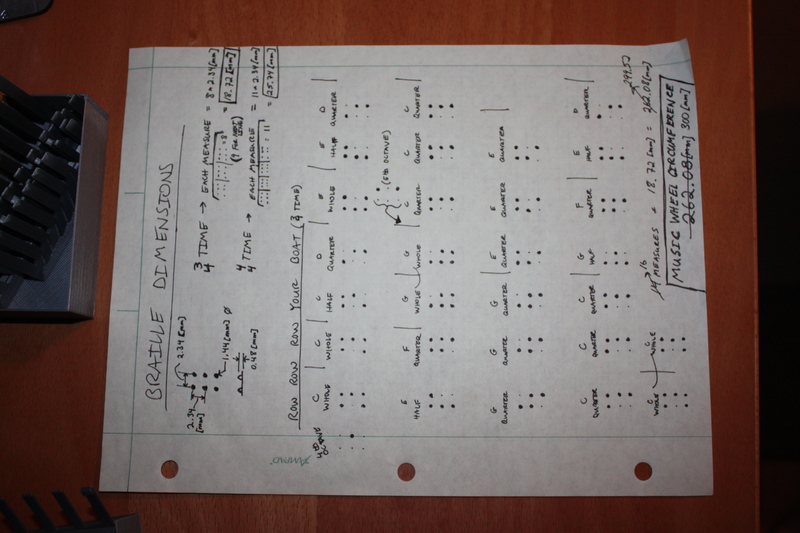 BRAILLE DIMENSIONS
2.34 [mm]
2.34 [mm]
1.44 [mm] Ø
0.48 [mm]
3/4 TIME → EACH MEASURE = 8 * 2.34 [mm]
= 18.72 [mm]
4/4 TIME → EACH MEASURE = 11 * 2.34 [mm]
= 25.74 [mm]
ROW ROW ROW YOUR BOAT (3/4 TIME)
4TH OCTAVE
C C C D E E D
WHOLE WHOLE HALF QUARTER WHOLE HALF QUARTER
(5TH OCTAVE)
E F G G C C C
HALF QUARTER WHOLE WHOLE QUARTER QUARTER QUARTER
G G G E E E
QUARTER QUARTER QUARTER QUARTER QUARTER QUARTER
C C C G F E D
QUARTER QUARTER QUARTER HALF QUARTER HALF QUARTER
C C
WHOLE WHOLE
16
14 MEASURES * 18.72 [mm] = 262.08 [mm]
299.52
MUSIC WHEEL CIRCUMFERENCE
262.08 [mm] 300 [mm]
AMPAD